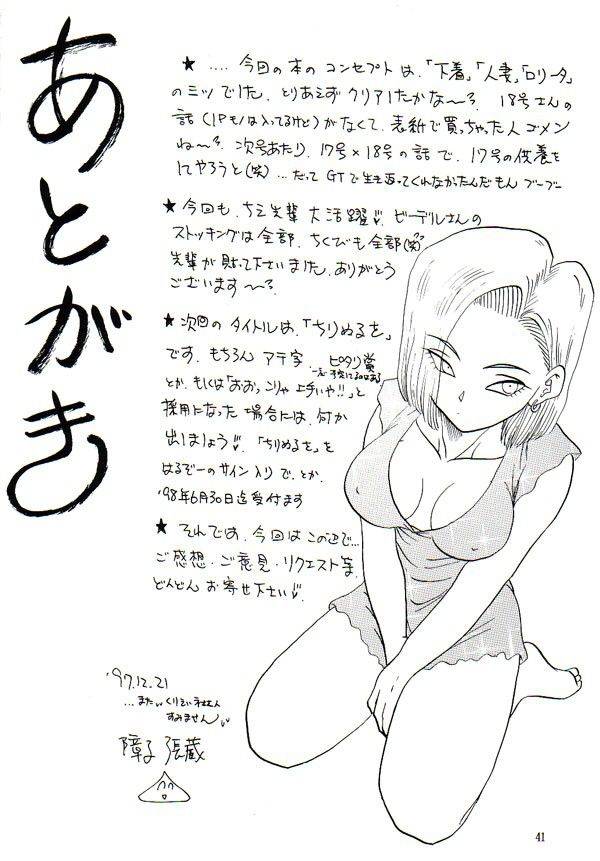 あとがき
★ ‥‥今回の本のコンセプトは、「下着」、「人妻」、「ロリータ」
の三ツでした。とりあえずクリアしたかな〜?。18号さんの
話(1Pモノは入ってるけど)がなくて、表紙で買っちゃった人ゴメン
ね〜?。次号あたり、17号×18号の話で、17号の供養を
してやろうと(笑)…だってGTで生き返ってくれなかったんだもんブーブー
★今回も、ちえ先輩大活躍♡。ビーデルさんの
ストッキングは全部、ちくびも全部(笑)
先輩が貼って下さいました。ありがとう
ございます〜?。
★次回のタイトルは、「ちりぬるを」
です。もちろんアテ字 ピタリ賞
とか、もしくは「おおっこりゃ上手いや!!」と
採用になった場合には、何か
出しましょう♡。「ちりぬるを」を
はるぞーのサイン入りで、とか。
'98年6月30日迄受付ます
★それでは、今回はこの辺で…
ご感想・ご意見・リクエスト等、
どんどんお寄せ下さい♡。
'97.12.21
すみません
障子 張蔵
41